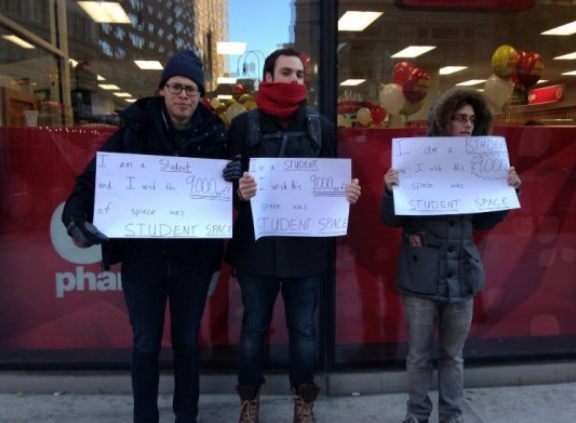 I am a Student
and I wish this 9000
of space was
STUDENT SPACE
I'm a STUDENT
I wish this 9000
space was
STUDENT SPACE
I am a STUDENT
I wish this 9000
space was
STUDENT SPACE
pharmacy